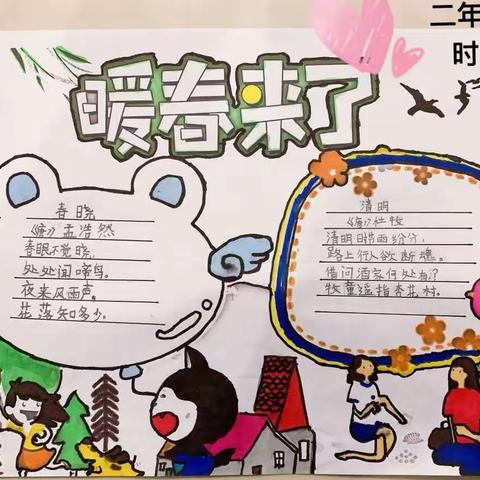 二年
时
暖春来了
春晓
《唐》孟浩然
春眠不觉晓,
处处闻啼鸟。
夜来风雨声。
花落知多少。
清明
《唐》杜牧
清明时雨纷纷,
路上行人欲断魂。
借问酒家何处有?
牧童遥指杏花村。